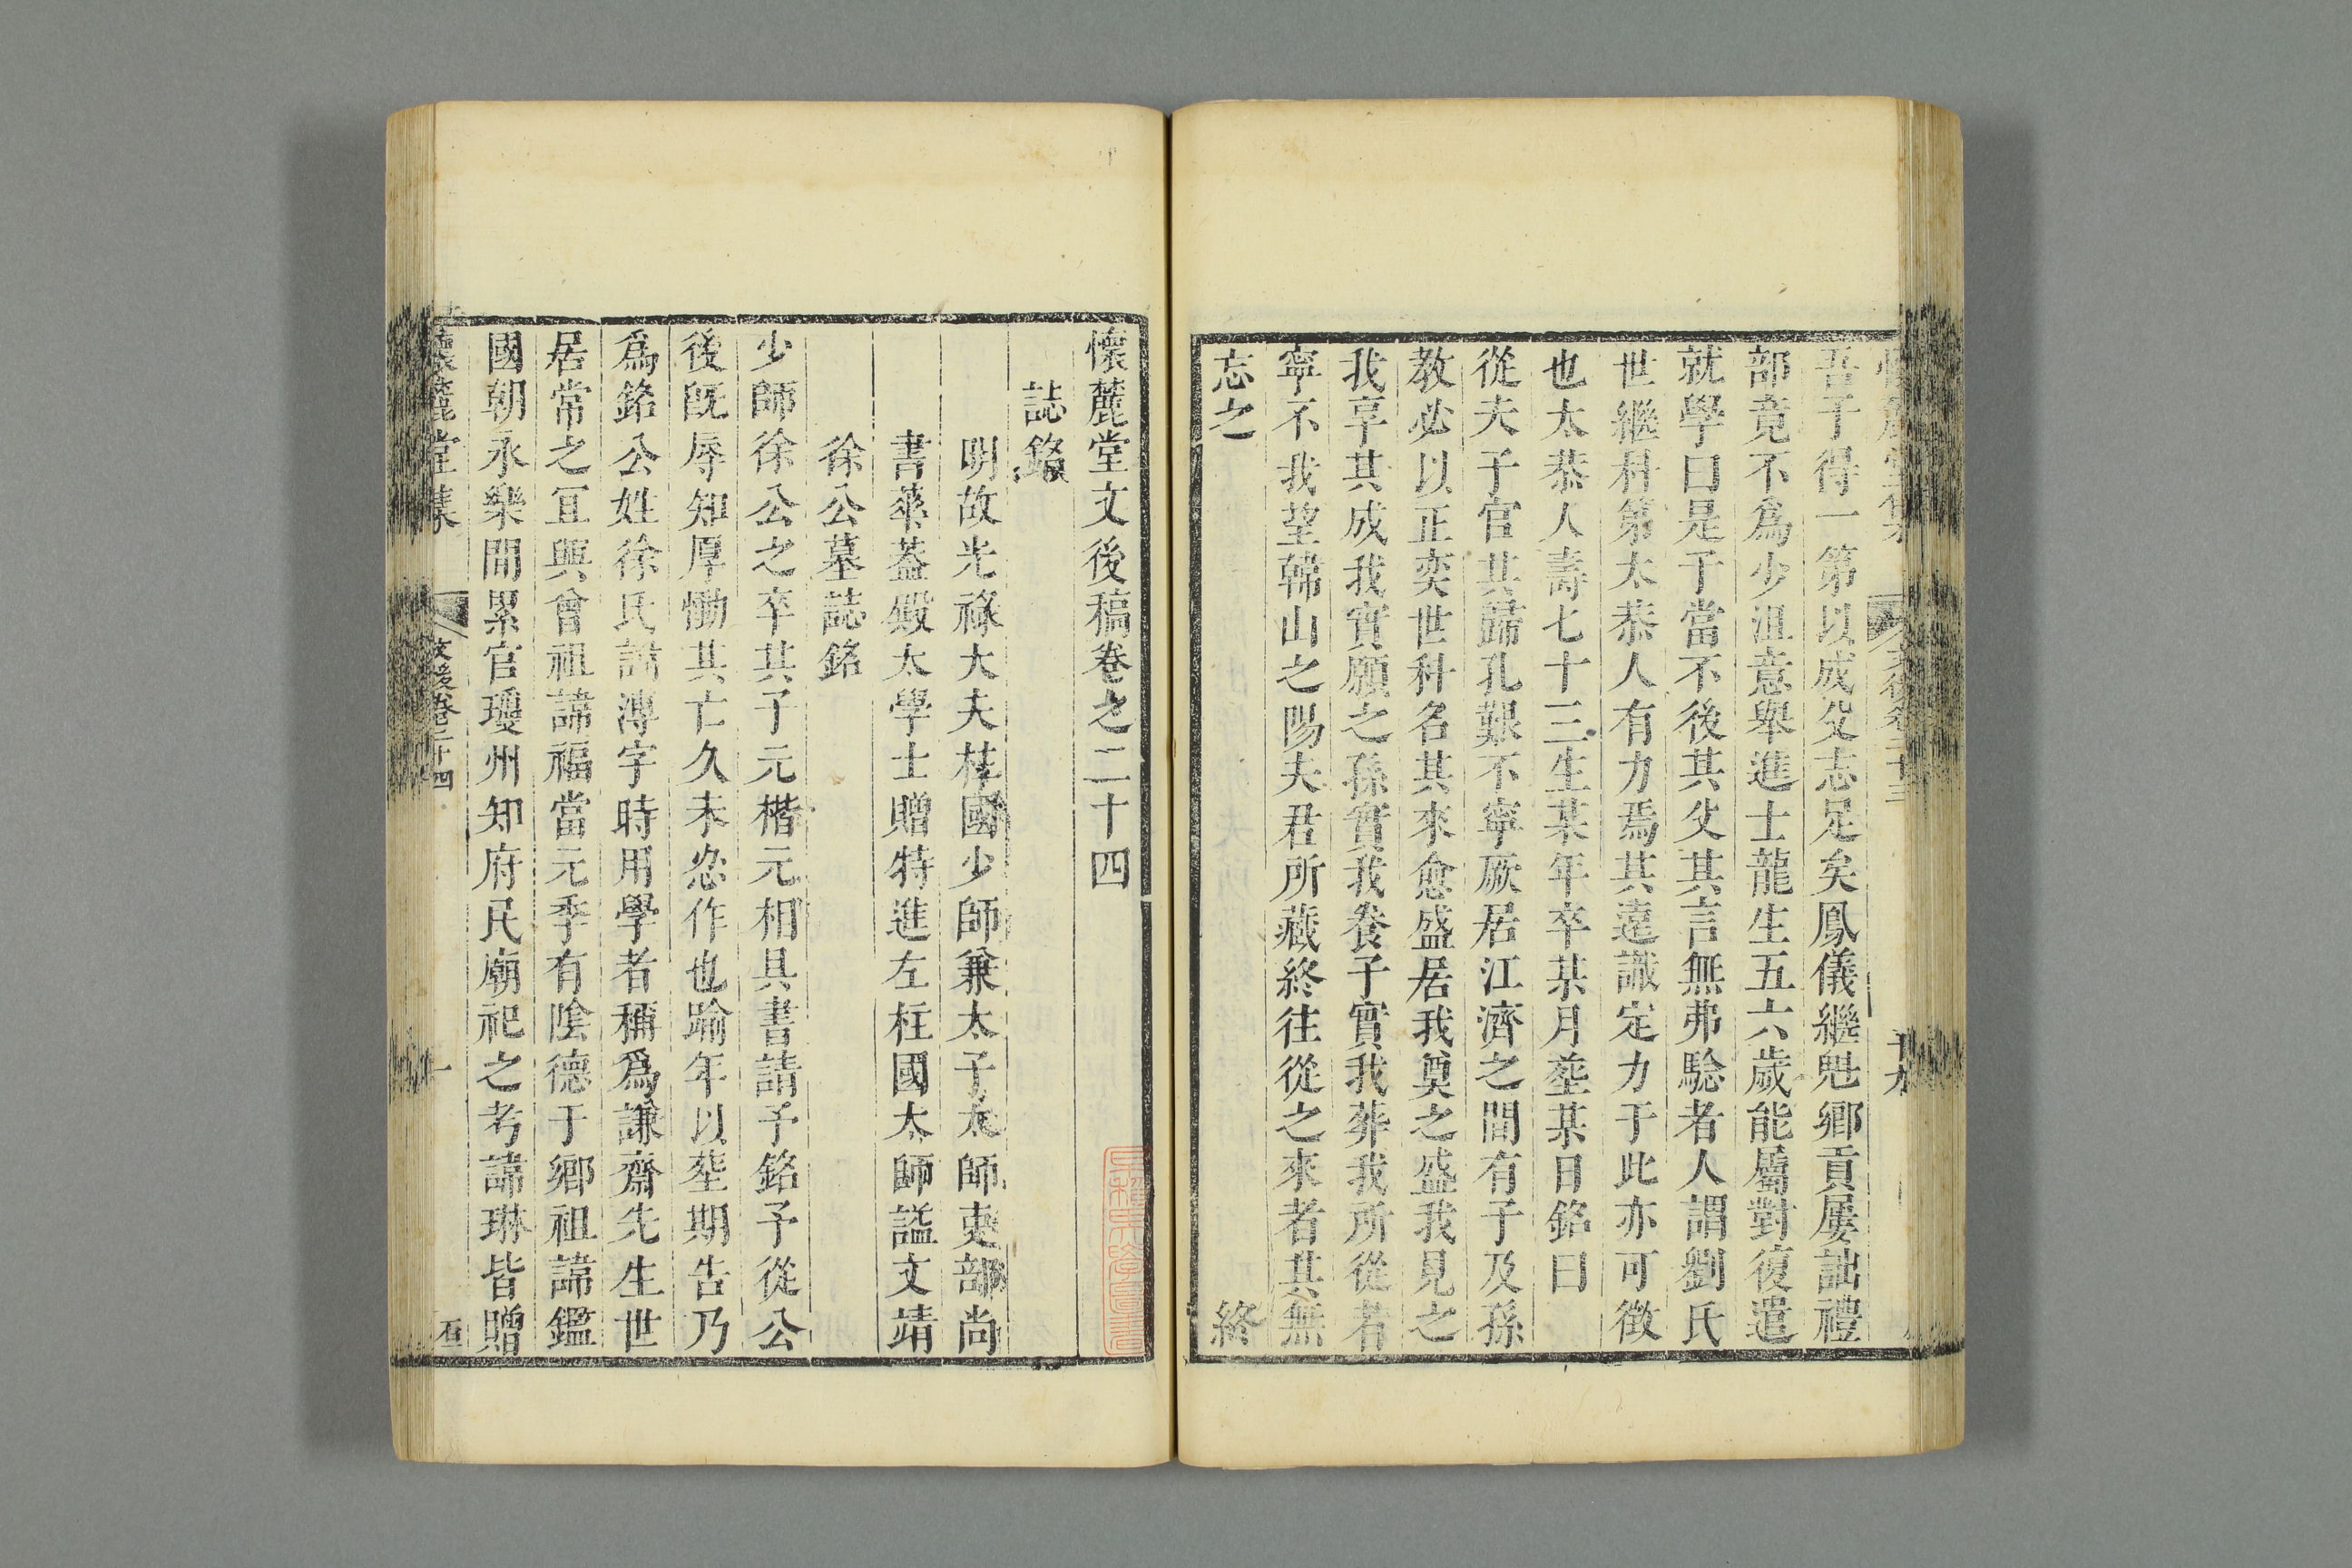 吾子得一第以成父志足矣鳳儀繼魁鄉貢屢詘禮
部竟不爲少沮意舉進士龍生五六歲能屬對復遣
就學曰是子當不後其父其言無弗驗者人謂劉氏
世繼科第太恭人有力焉其遠識定力于此亦可徵
也太恭人壽七十三生某年卒某月塟某日銘曰
從夫子官其歸孔艱不寧厥居江濟之間有子及孫
教必以正奕世科名其來愈盛居我奠之盛我見之
我享其成我實願之孫實我養子實我葬我所從若
寧不我望韓山之陽夫君所藏終往從之來者其無
忘之 終
懷麓堂文後稿卷之二十四
誌銘
明故光祿大夫柱國少師兼太子太師吏部尚
書華蓋殿大學士贈特進左柱國太師謚文靖
徐公墓誌銘
少師徐公之卒其子元楷元相具書請予銘予從公
後旣辱知厚慟其亡久未忍作也踰年以塟期告乃
爲銘公姓徐氏諱溥字時用學者稱爲謙齋先生世
居常之宜興曾祖諱福當元季有陰德于鄉祖諱鑑
國朝永樂間累官瓊州知府民廟祀之考諱琳皆贈
懷麓堂集 文後卷二十四 一 石